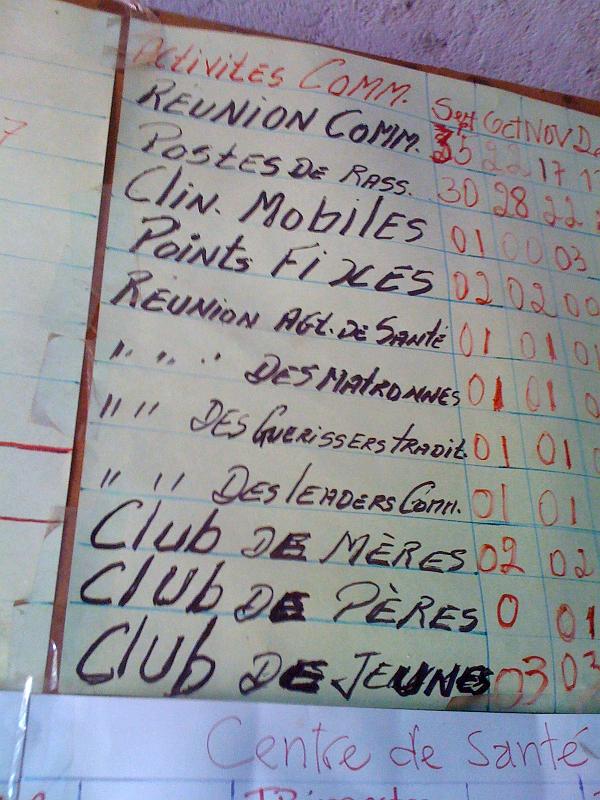 7
ACTIVITÉS COMM. Sept Oct NOV De
RÉUNION COMM. 35 22 17 1
POSTES DE RASS. 30 28 22
Clin. MobilES 01 00 03
Points FiXES 02 02 00
REUNION AGt. DE SANtÉ 01 01 01
" " " DES MAtRONNES 01 01
" " DES GUERISSERS tRADit. 01 01
" " DES lEADERS COMM. 01 01
Club DE MÈRES 02 02
Club DE PÈRES 0 01
Club DE JEUNES 03 03
Centre de Santé